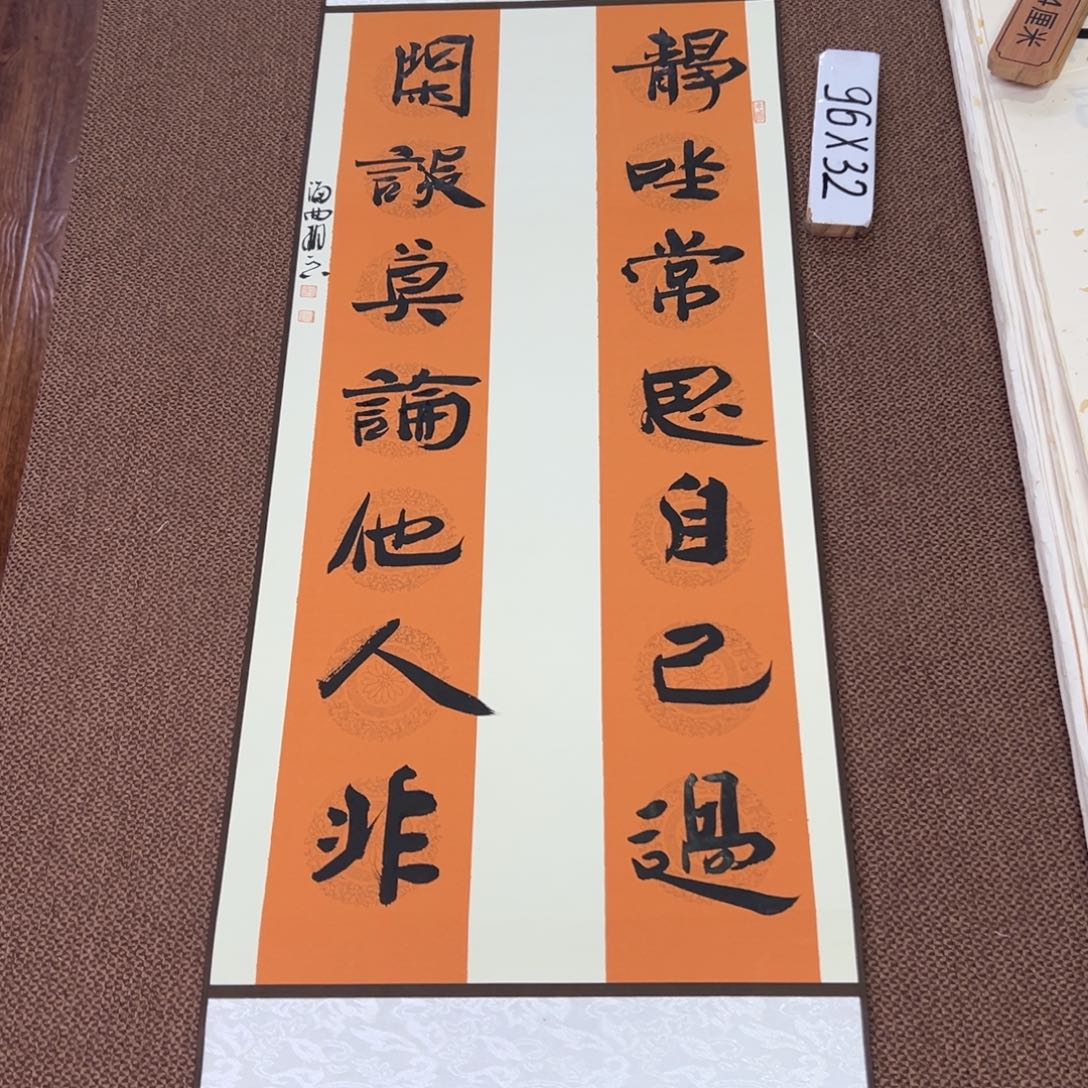 靜坐常思自己過
閑談莫論他人非
96X32
4厘米